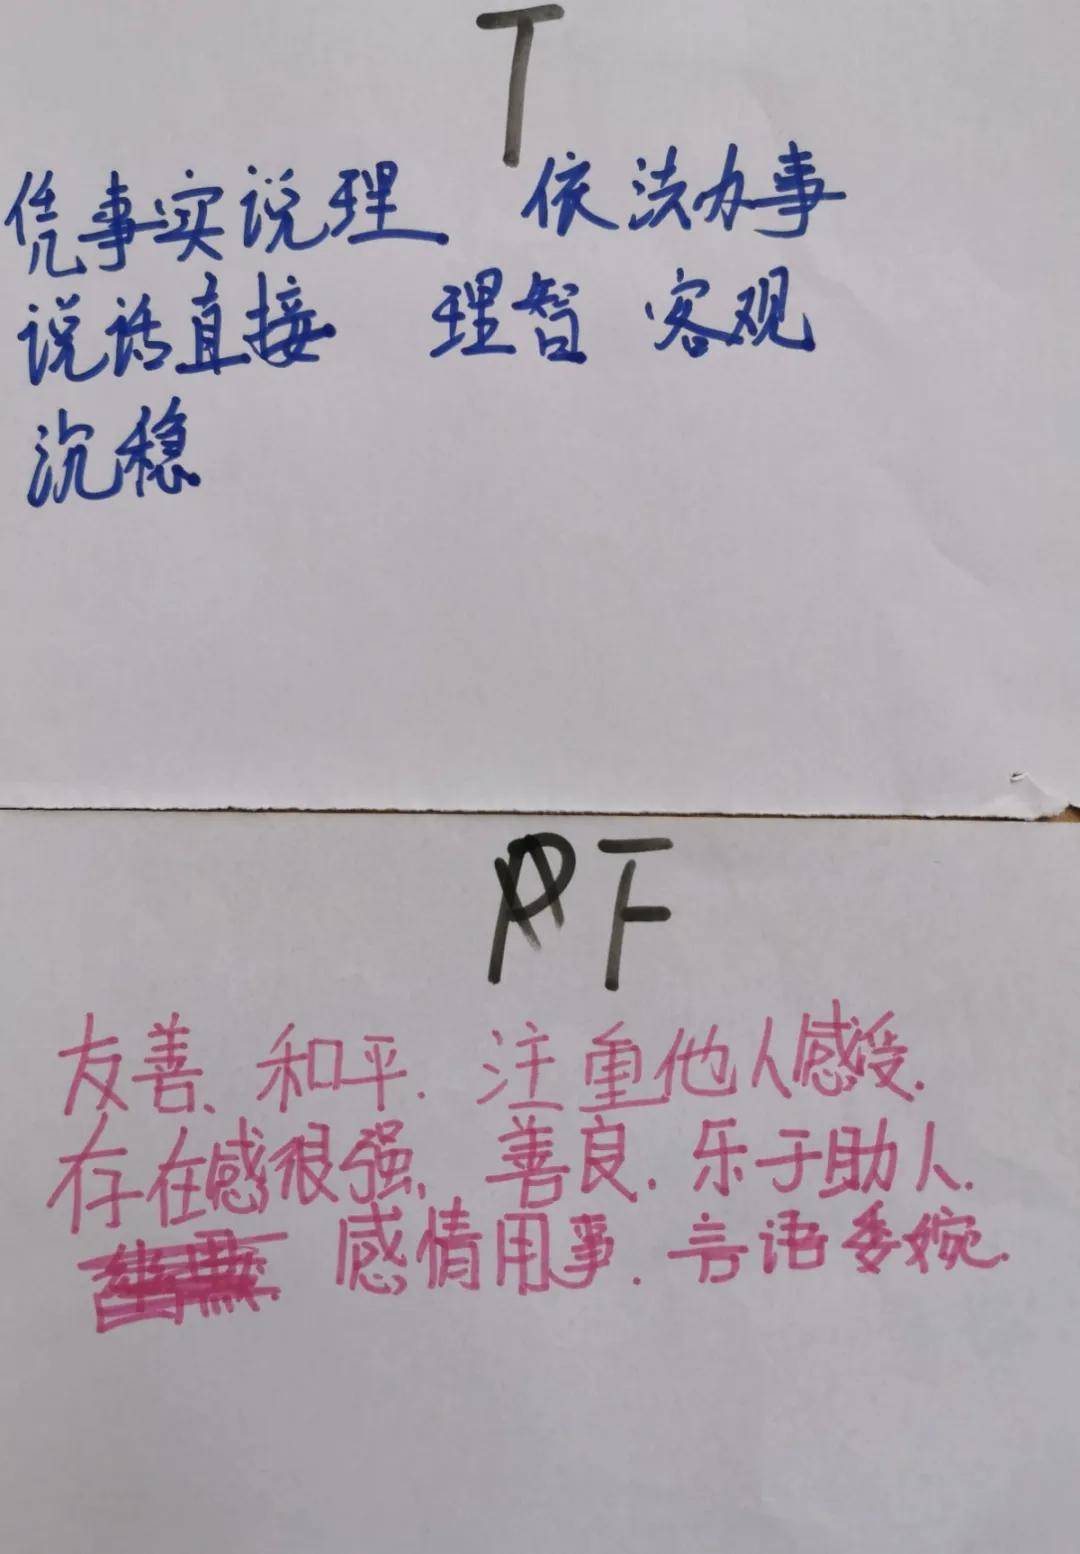 T
凭事实说理 依法办事
说话直接 理智 客观
沉稳
F
友善、和平、注重他人感受、
存在感很强、善良、乐于助人、
感情用事、言语委婉、